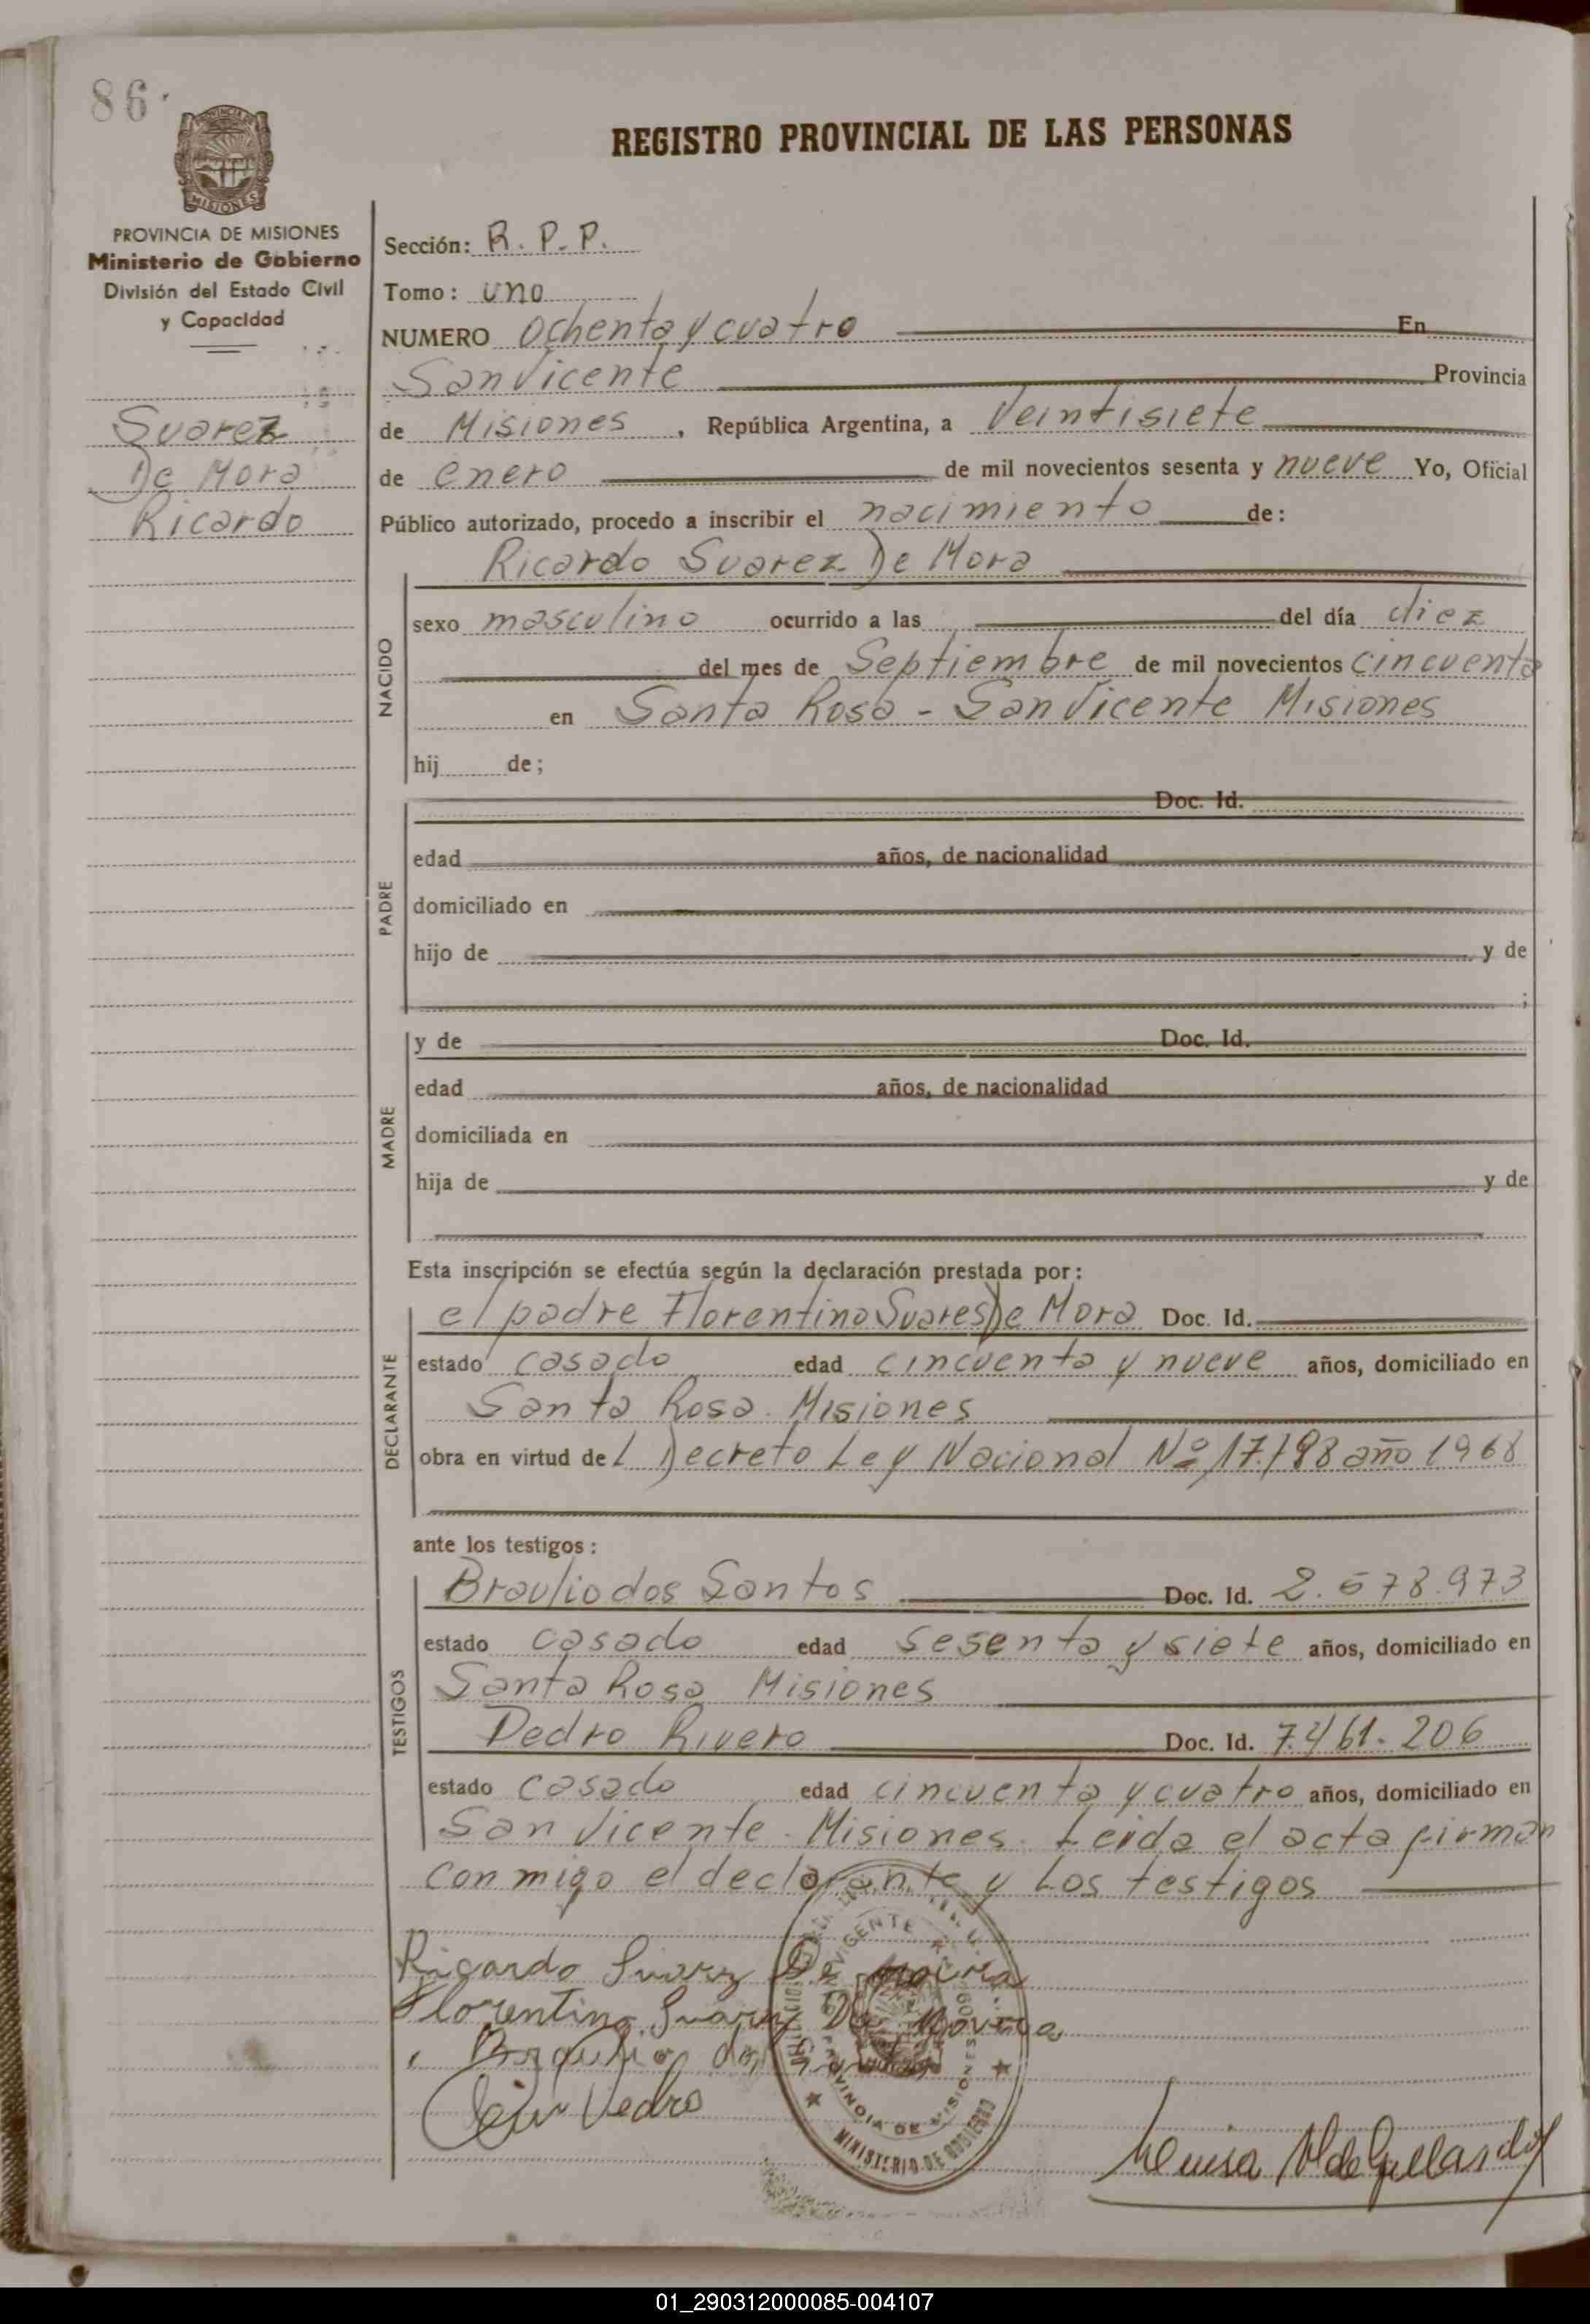 86.
REGISTRO PROVINCIAL DE LAS PERSONAS
MISIONES
PROVINCIA DE MISIONES
Ministerio de Gobierno
División del Estado Civil
y Capacidad
Suarez
De Mora
Ricardo
Sección: R. P. P.
Tomo: uno
NUMERO Ochenta y cuatro En
San Vicente Provincia
de Misiones, República Argentina, a Veintisiete
de enero de mil novecientos sesenta y nueve Yo, Oficial
Público autorizado, procedo a inscribir el nacimiento de:
Ricardo Suarez De Mora
NACIDO
sexo masculino ocurrido a las del día diez
del mes de Septiembre de mil novecientos cincuenta
en Santa Rosa - San Vicente Misiones
hij de;
PADRE
Doc. Id.
edad años, de nacionalidad
domiciliado en
hijo de y de
;
MADRE
y de Doc. Id.
edad años, de nacionalidad
domiciliada en
hija de y de
Esta inscripción se efectúa según la declaración prestada por:
DECLARANTE
el padre Florentino Suares De Mora Doc. Id.
estado casado edad cincuenta y nueve años, domiciliado en
Santa Rosa. Misiones
obra en virtud del Decreto Ley Nacional Nº 17.198 año 1968
ante los testigos:
TESTIGOS
Braulio dos Santos Doc. Id. 2.678.973
estado casado edad sesenta y siete años, domiciliado en
Santa Rosa Misiones
Pedro Rivero Doc. Id. 7.461.206
estado casado edad cincuenta y cuatro años, domiciliado en
San Vicente. Misiones. Leida el acta firman
con migo el declarante y Los testigos
Ricardo Suarez De
Florentino Suarez De
PROVINCIA DE MISIONES
MINISTERIO DE GOBIERNO
Pedro
01_290312000085-004107